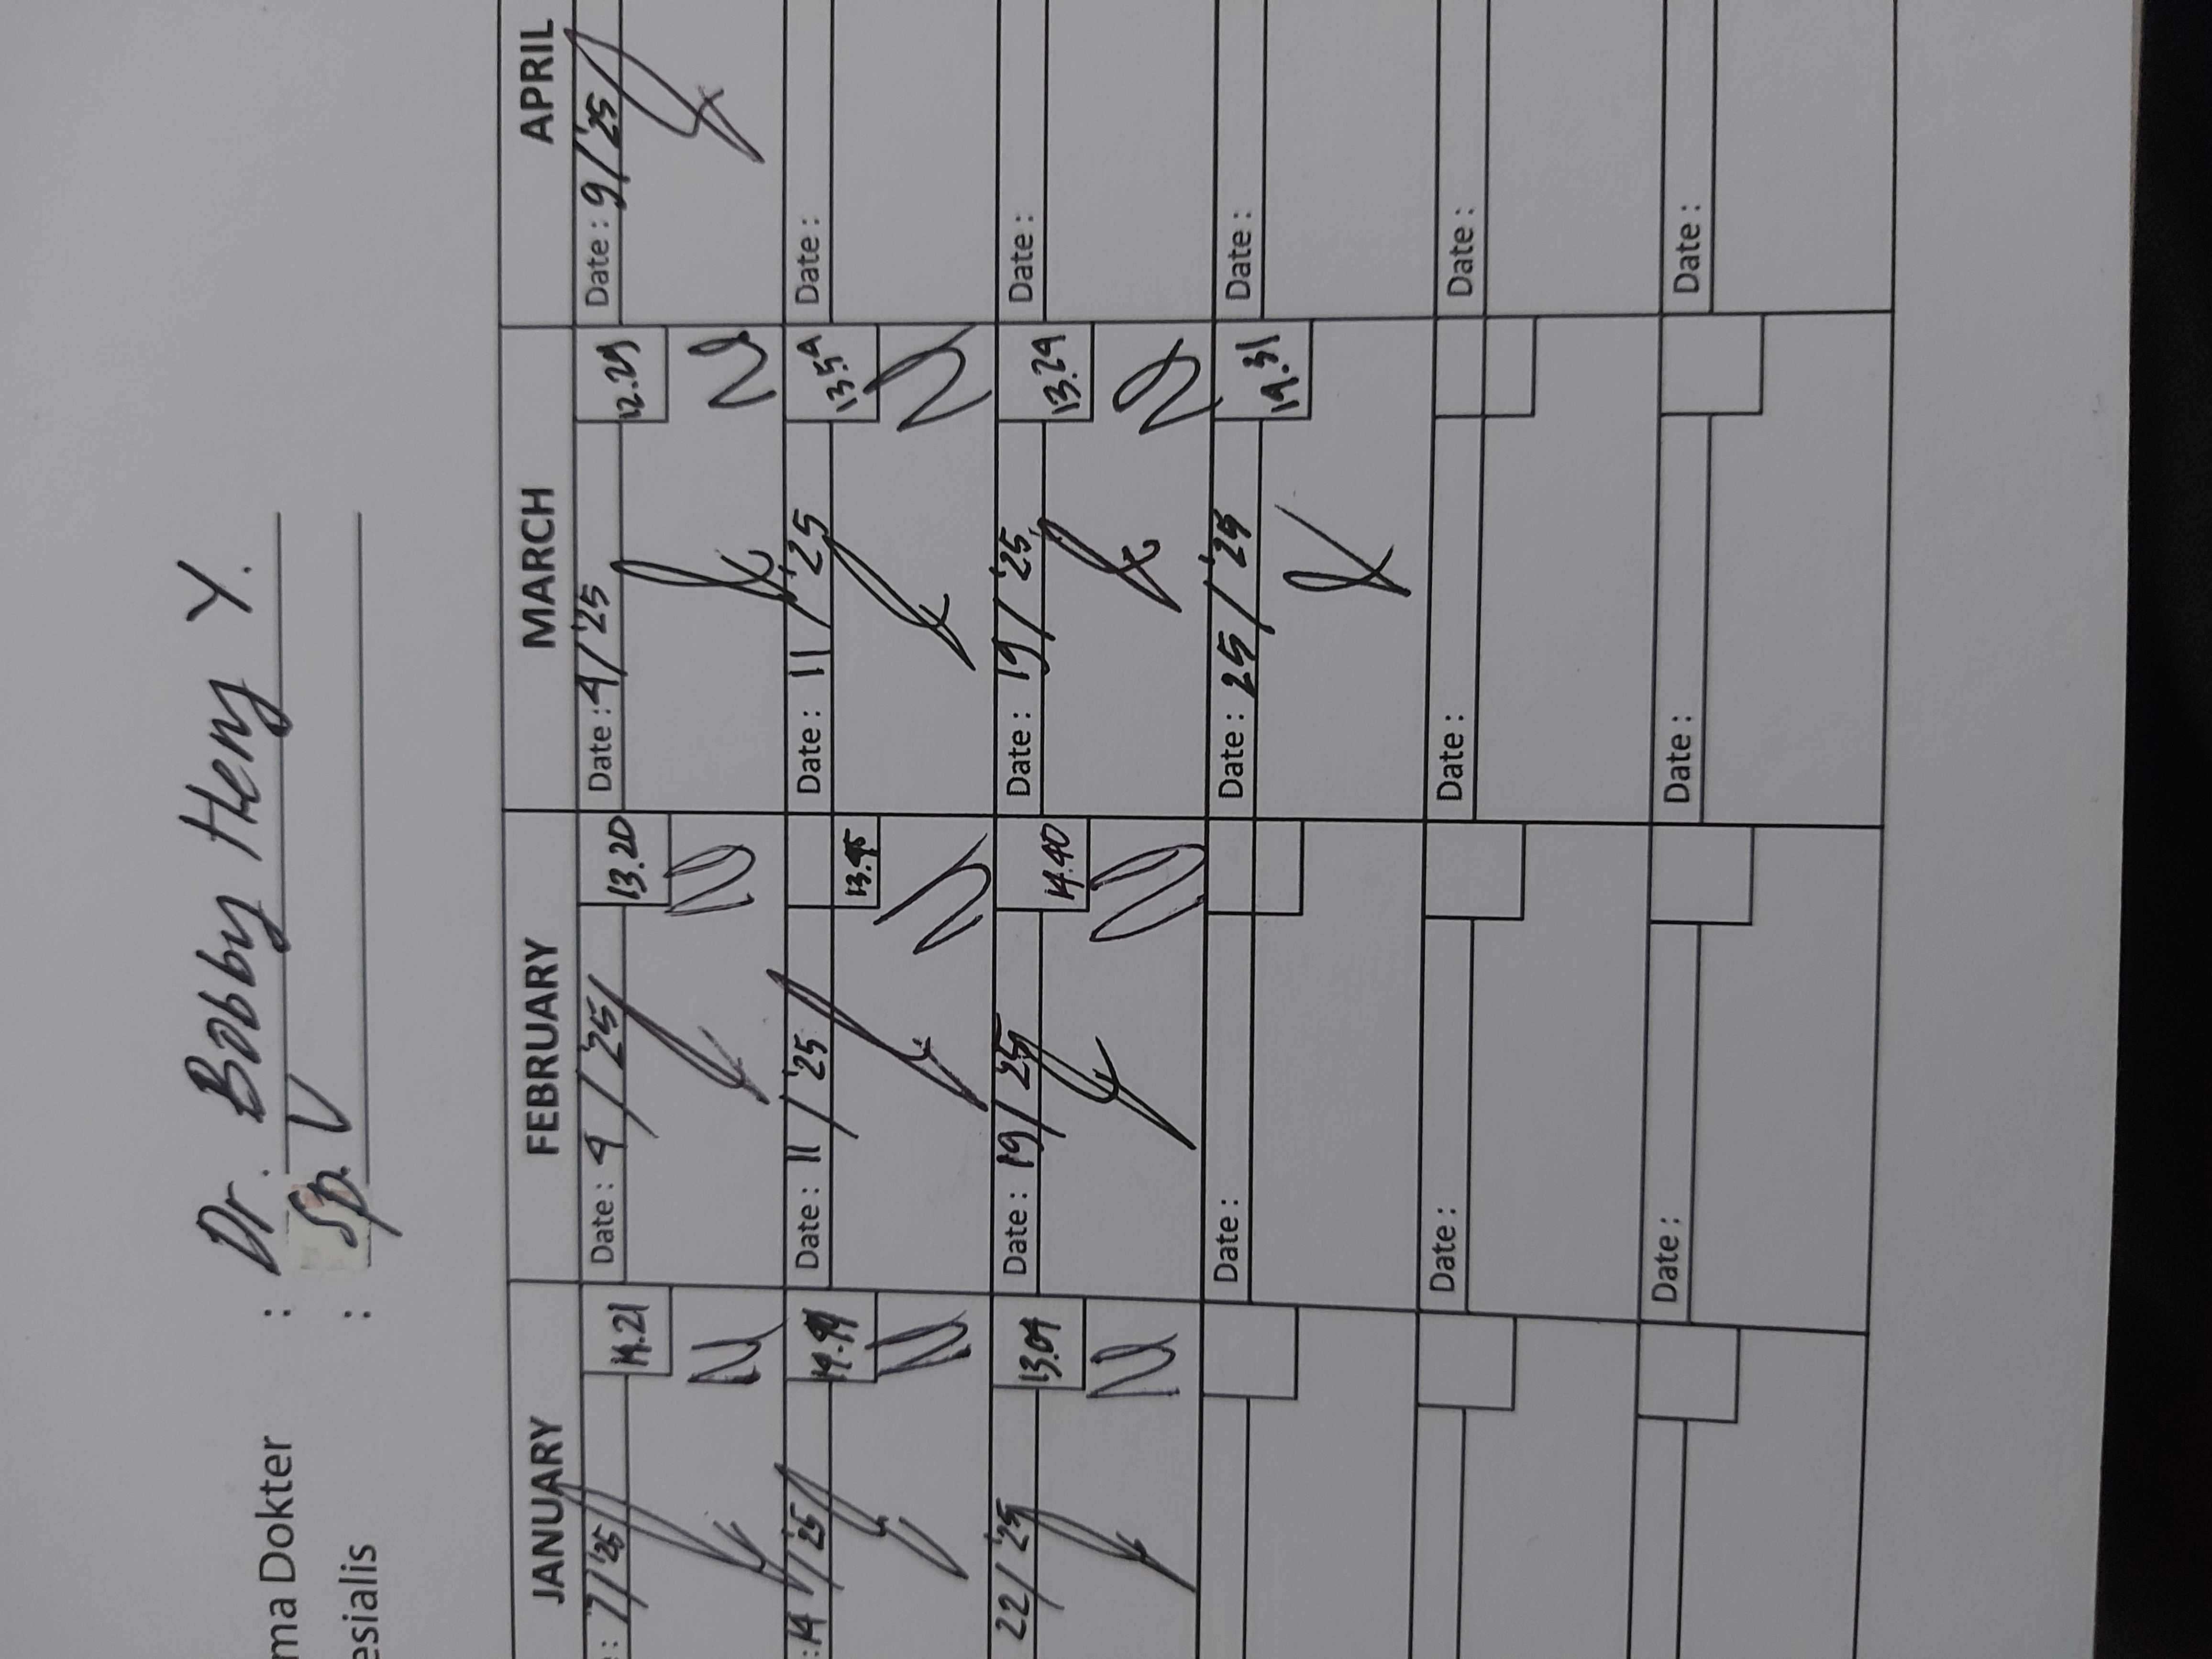 ma Dokter : Dr. Bobby Hery Y.
esialis : Sp. V
JANUARY FEBRUARY MARCH APRIL
: 7/'25 14.21 Date : 4/'25 13.20 Date : 4/'25 12.29 Date : 9/'25
: 14/'25 Date : 11/'25 13.45 Date : 11/'25 13.54 Date :
22/'25 13.04 Date : 19/'25 14.40 Date : 19/'25 13.24 Date :
Date : Date : 25/'25 14.31 Date :
Date : Date : Date :
Date : Date : Date :